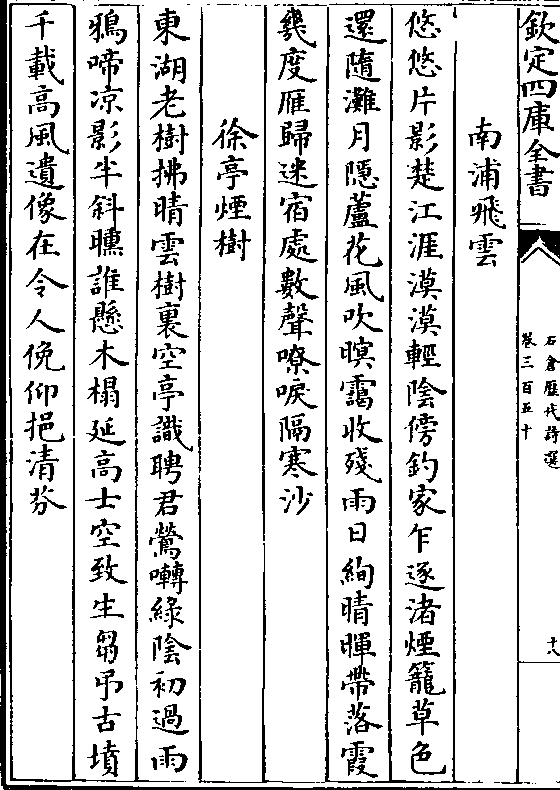 欽定四庫全書
石倉歷代詩選
卷三百五十
十八
南浦飛雲
悠悠片影楚江涯漠漠輕陰傍釣家乍逐渚煙籠草色
還隨灘月隱蘆花風吹暝靄收殘雨日絢晴暉帶落霞
幾度雁歸迷宿處數聲嘹唳隔寒沙
徐亭煙樹
東湖老樹拂晴雲樹裏空亭識聘君鶯囀綠陰初過雨
鴉啼凉影半斜曛誰懸木榻延高士空致生芻弔古墳
千載高風遺像在令人俛仰挹清芬